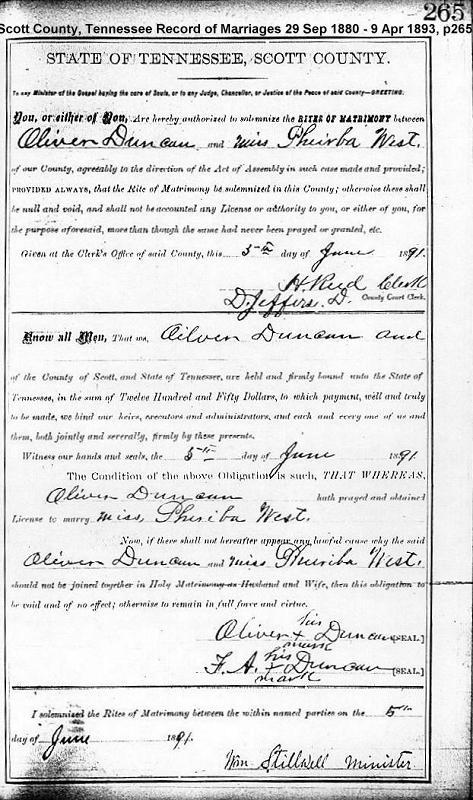 265
Scott County, Tennessee Record of Marriages 29 Sep 1880 - 9 Apr 1893, p265
STATE OF TENNESSEE, SCOTT COUNTY.
To any Minister of the Gospel having the care of Souls, or to any Judge, Chancellor, or Justice of the Peace of said County—GREETING:
You, or either of You, Are hereby authorized to solemnize the RITES OF MATRIMONY between
Oliver Duncan and miss Sherba West.
of our County, agreeably to the direction of the Act of Assembly in such case made and provided;
PROVIDED ALWAYS, that the Rite of Matrimony be solemnized in this County; otherwise these shall
be null and void, and shall not be accounted any License or authority to you, or either of you, for
the purpose aforesaid, more than though the same had never been prayed or granted, etc.
Given at the Clerk's Office of said County, this 5th day of June 1891.
H. Reed Clerk
D. Jeffers. D. County Court Clerk.
Know all Men, That we, Oilver Duncan and
of the County of Scott, and State of Tennessee, are held and firmly bound unto the State of
Tennessee, in the sum of Twelve Hundred and Fifty Dollars, to which payment, well and truly
to be made, we bind our heirs, executors and administrators, and each and every one of us and
them, both jointly and severally, firmly by these presents.
Witness our hands and seals, the 5th day of June 1891
The Condition of the above Obligation is such, THAT WHEREAS,
Oliver Duncan hath prayed and obtained
License to marry miss, Sheriba West.
Now, if there shall not hereafter appear any lawful cause why the said
Oliver Duncan and miss Sheriba West.
should not be joined together in Holy Matrimony as Husband and Wife, then this obligation to
be void and of no effect; otherwise to remain in full force and virtue.
his
Oliver x Duncan [SEAL.]
mark
his
F. A. x Duncan [SEAL.]
mark
I solemnized the Rites of Matrimony between the within named parties on the 5th
day of June 1891.
Wm Stillwell Minister